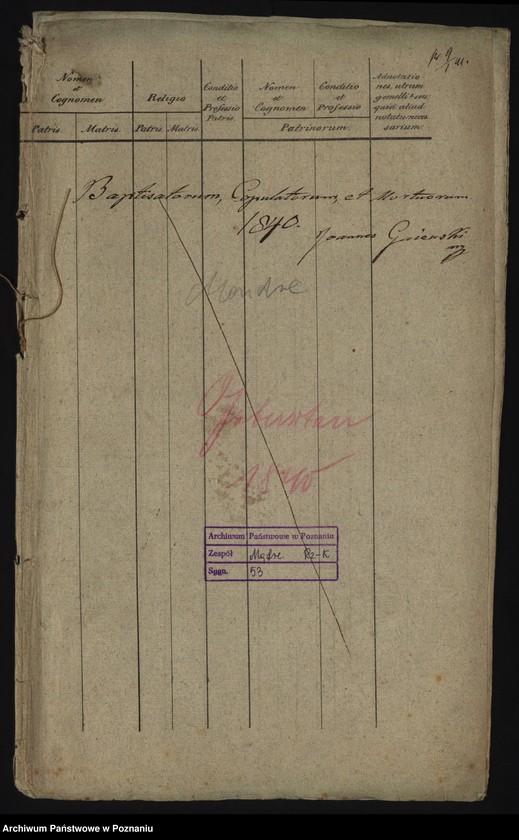 Nomen et Cognomen
Religio
Conditio et Professio Patris.
Nomen et Cognomen
Conditio et Professio
Adnotationes, utrum gemelli seu quid aliud notatu necessarium.
Patris.
Matris.
Patris.
Matris.
Patrinorum.
Baptisatorum, Copulatorum, et Mortuorum
1840.
Joannes
Mondre
Geburten
1840
Archiwum Państwowe w Poznaniu
Zespół Mądre Rz-K
Sygn. 53
Archiwum Państwowe w Poznaniu